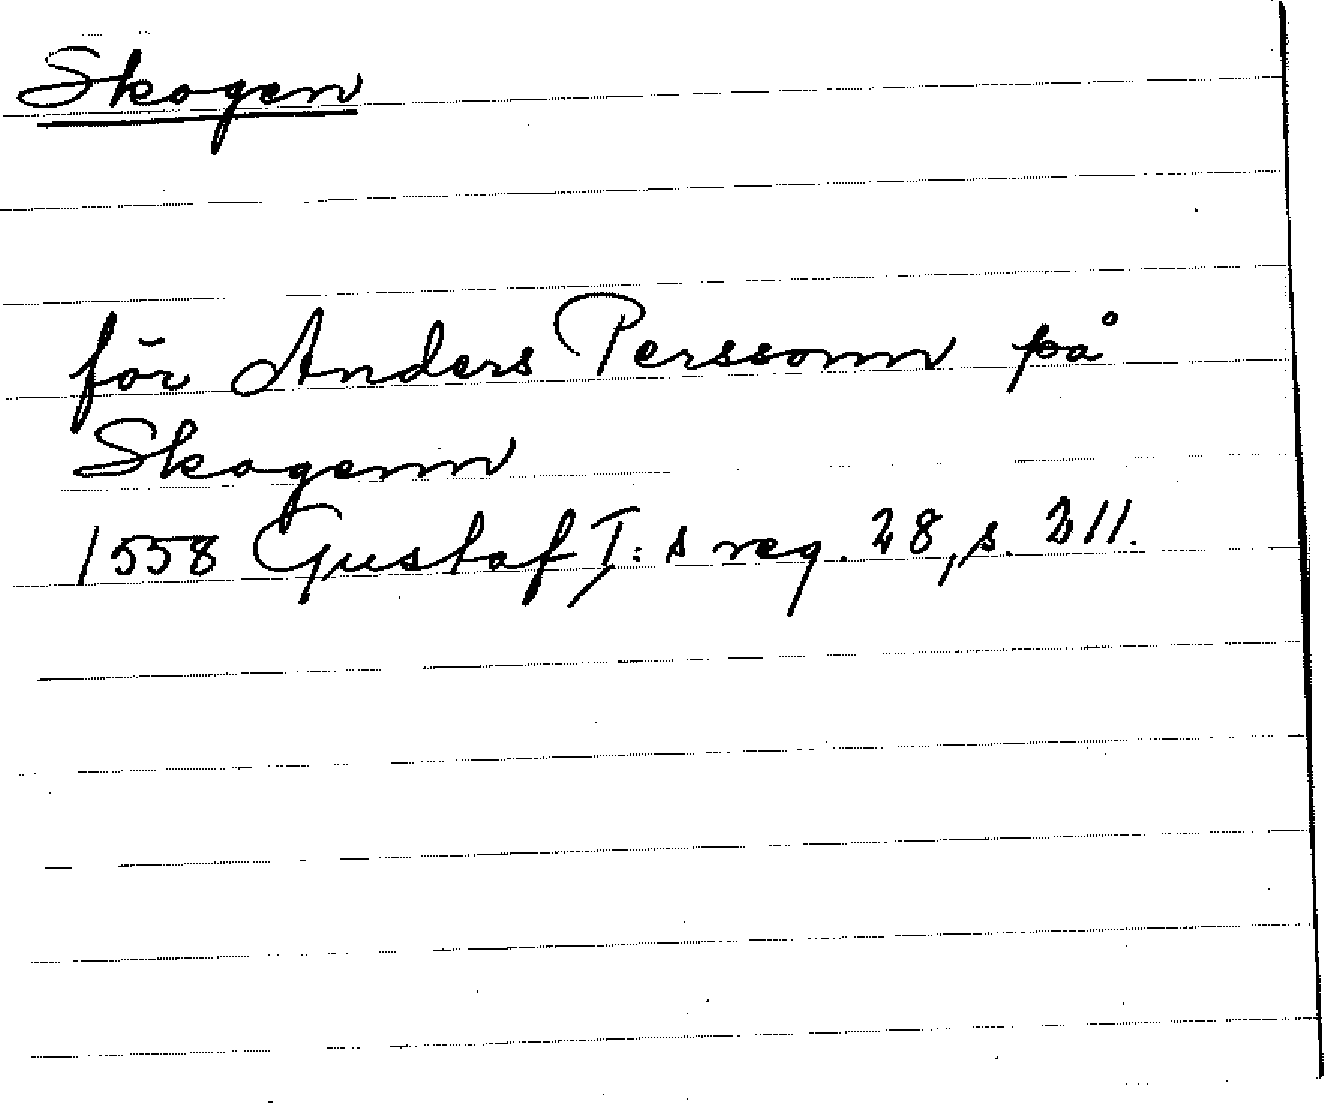 Skogen
för Anders Perssonn på
Skogenn
1558 Gustaf I:s reg. 28, s. 211.